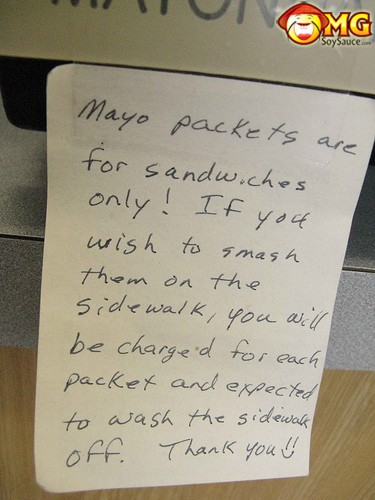 OMG
SoySauce.com
Mayo packets are
for sandwiches
only! If you
wish to smash
them on the
sidewalk, you will
be charged for each
packet and expected
to wash the sidewalk
off. Thank you!!